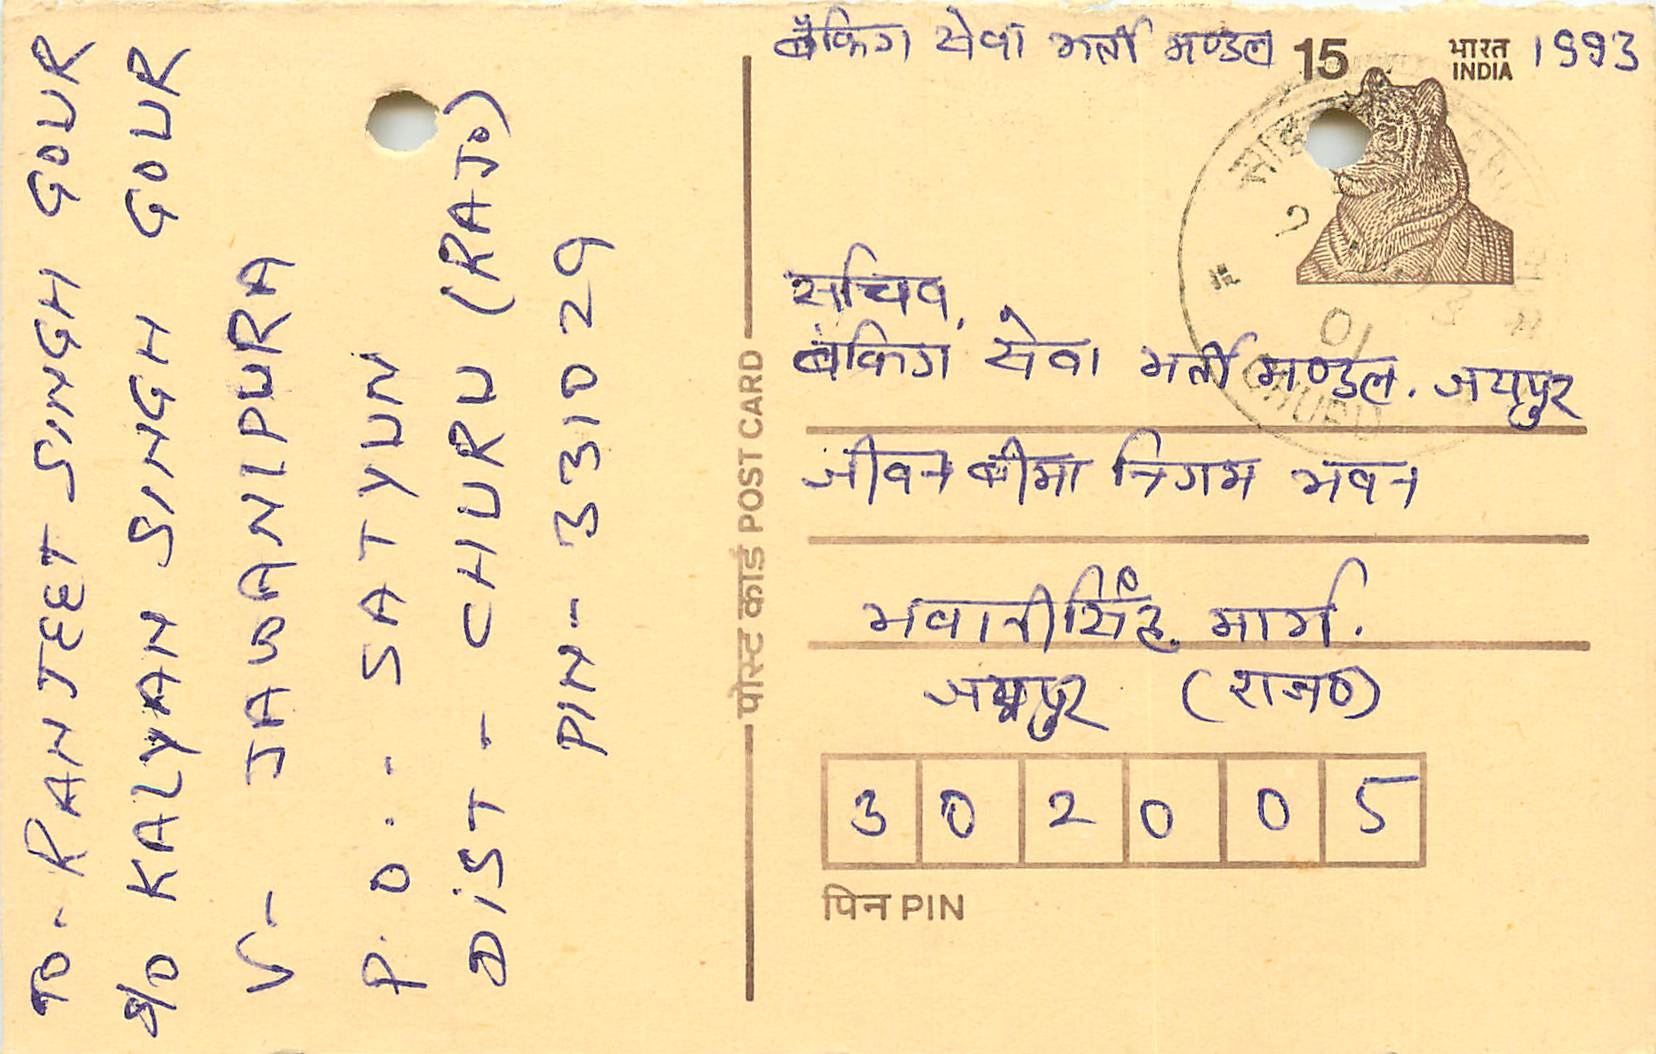 बैंकिग सेवा भर्ती मण्डल 15 भारत 1993
INDIA
सचिव,
बैंकिग सेवा भर्ती मण्डल. जयपुर
जीवन बीमा निगम भवन
भवानीसिंह मार्ग.
जयपुर (राज०)
302005
पिन PIN
पोस्ट कार्ड POST CARD
TO- RANJEET SINGH GOUR
S/O KALYAN SINGH GOUR
V- JAWANIPURA
P.O.- SATYUN
DIST- CHURU (RAJ०)
PIN- 331029